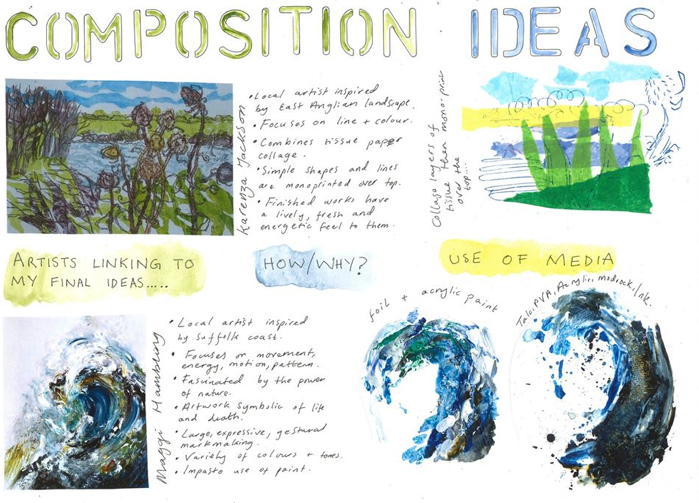 COMPOSITION IDEAS
Karenza Jackson
• Local artist inspired
by East Anglian landscape.
• Focuses on line + colour.
• Combines tissue paper
collage.
• Simple shapes and lines
are monoprinted over top.
• Finished works have
a lively, fresh and
energetic feel to them.
Collage layers of
tissue then mono-print
over the
top...
ARTISTS LINKING TO
MY FINAL IDEAS.....
HOW/WHY?
USE OF MEDIA
Maggi Hambling
• Local artist inspired
by Suffolk coast.
• Focuses on movement,
energy, motion, pattern.
• Fascinated by the power
of nature.
• Artwork symbolic of life
and death.
• Large, expressive, gestural
markmaking.
• Variety of colours + tones.
• Impasto use of paint.
foil + acrylic paint
Talc, PVA, Acrylic, modrock, Ink.